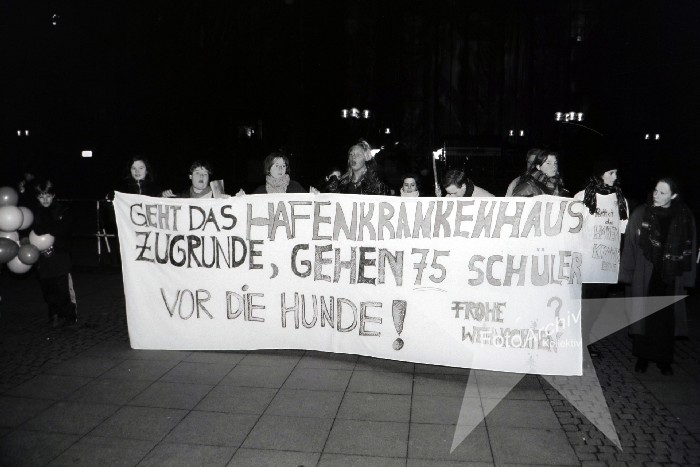 GEHT DAS HAFENKRANKENHAUS
ZUGRUNDE, GEHEN 75 SCHÜLER
VOR DIE HUNDE!
FROHE
WEIHNACHTEN ?
Rettet
das
Foto Archiv
Kollektiv